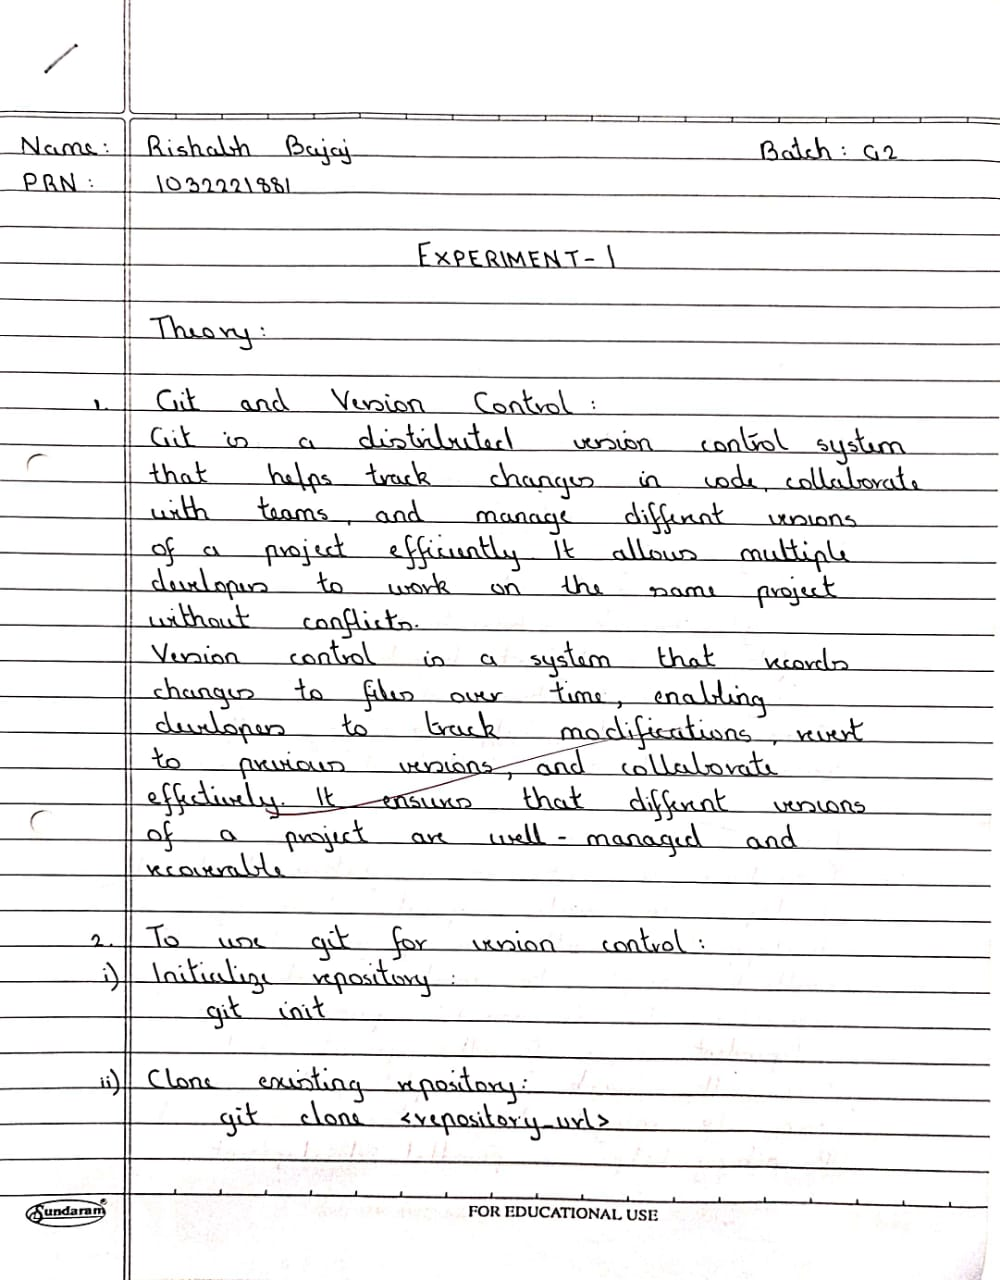 Name: Rishabh Bajaj Batch: G2
PRN: 1032221881
EXPERIMENT-1
Theory:
1. Git and Version Control:
Git is a distributed version control system
that helps track changes in code, collaborate
with teams, and manage different versions
of a project efficiently. It allows multiple
developers to work on the same project
without conflicts.
Version control is a system that records
changes to files over time, enabling
developers to track modifications, revert
to previous versions, and collaborate
effectively. It ensures that different versions
of a project are well-managed and
recoverable
2. To use git for version control:
i) Initialize repository:
git init
ii) Clone existing repository:
git clone <repository_url>
Sundaram FOR EDUCATIONAL USE